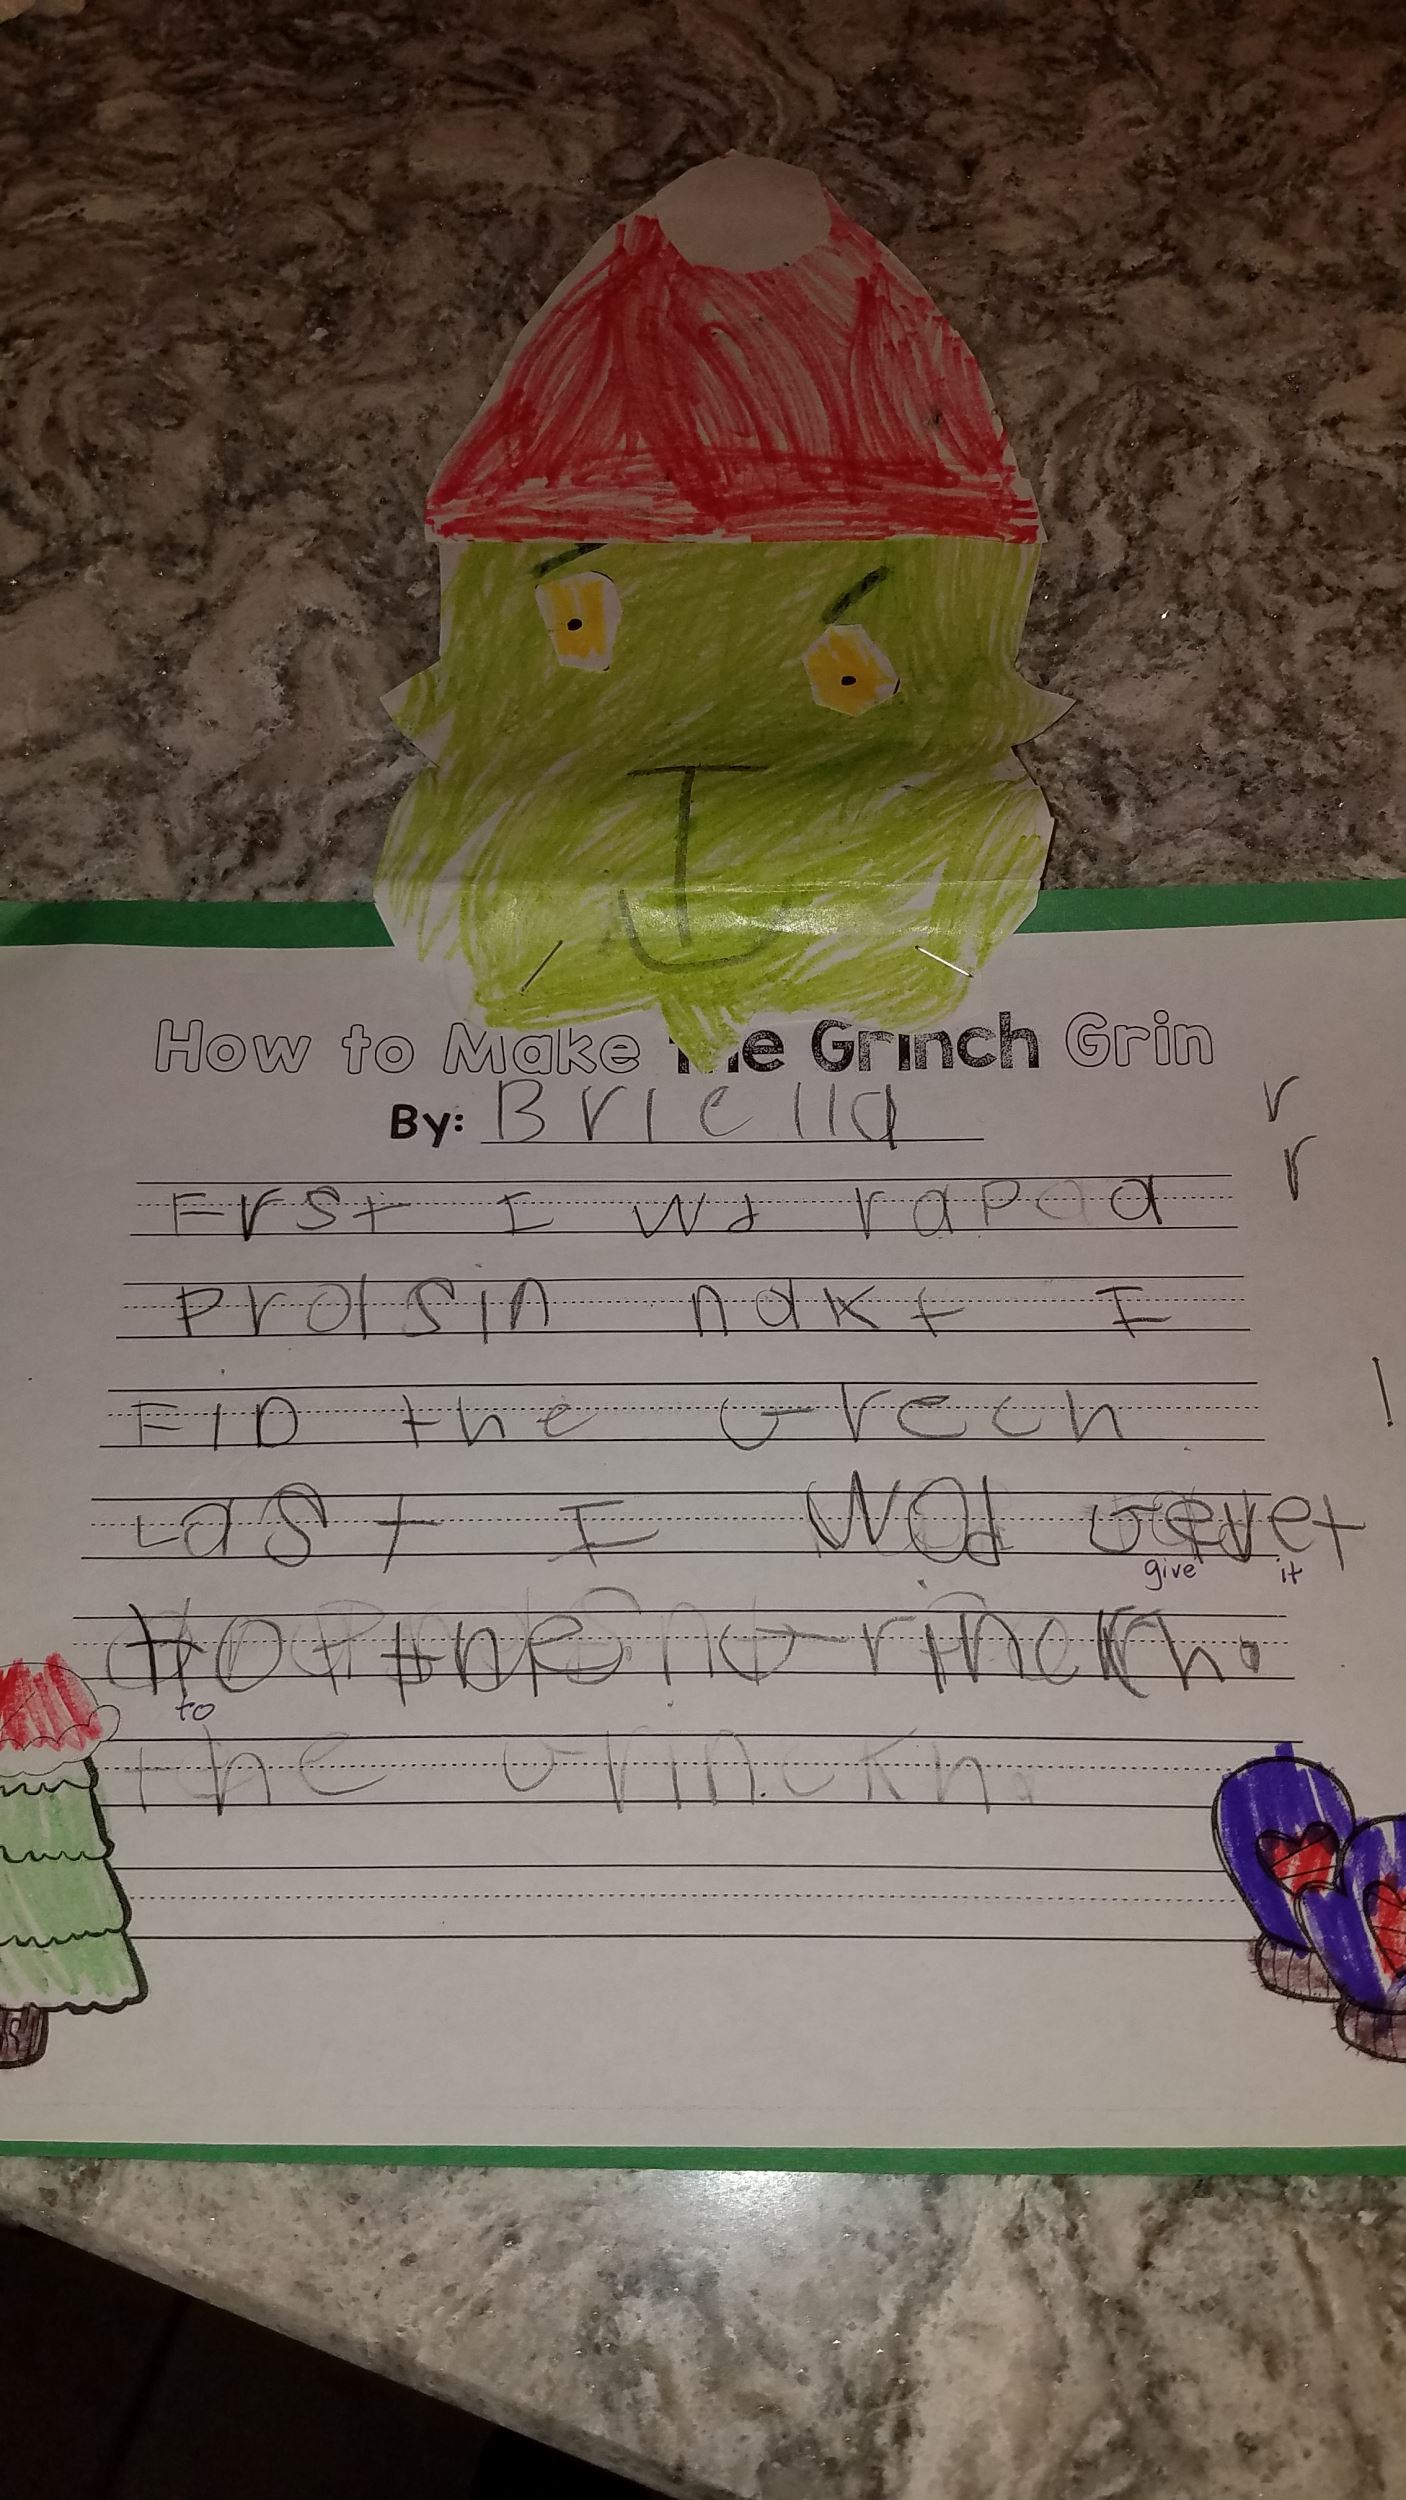 How to Make the Grinch Grin
By: Briella
r
r
Frst I wd rap a
prdsin nakt I
FID the Grech
!
Last I Wod Gevet
give it
to the Grinckh.
to
the Grinckh.